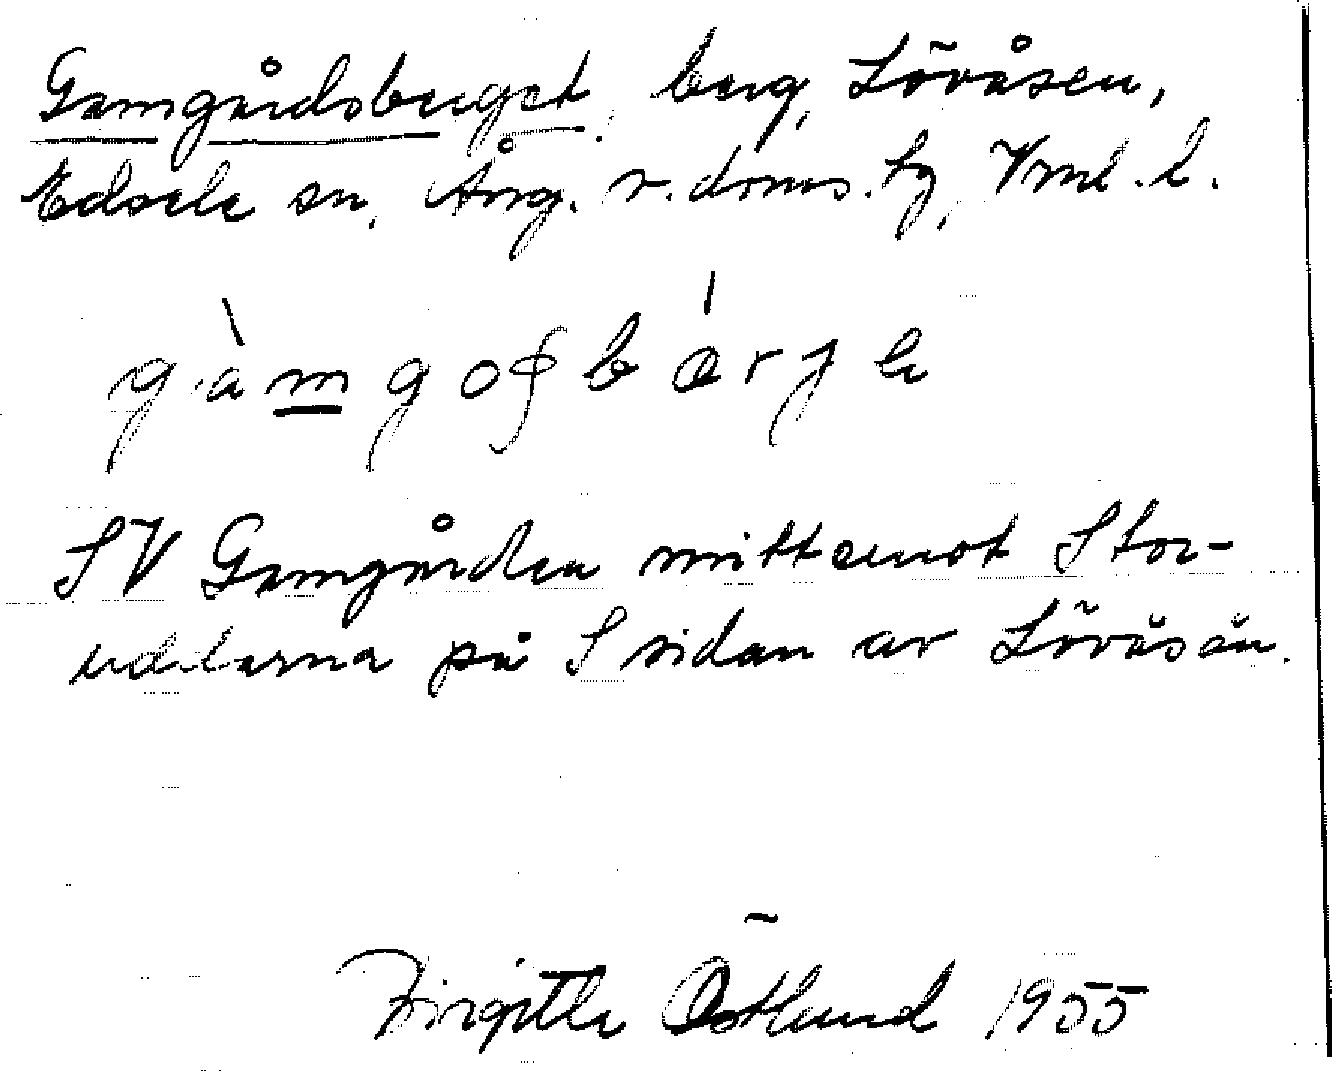 Gamgårdsberget, berg, Lövåsen,
Edsele sn, Ång. v. doms. tg, Vrnl. l.
gàmgoʂbǽrjə
SV Gamgården mittemot Stor-
uddarna på S sidan av Lövåsån.
Birgitta Östlund 1955